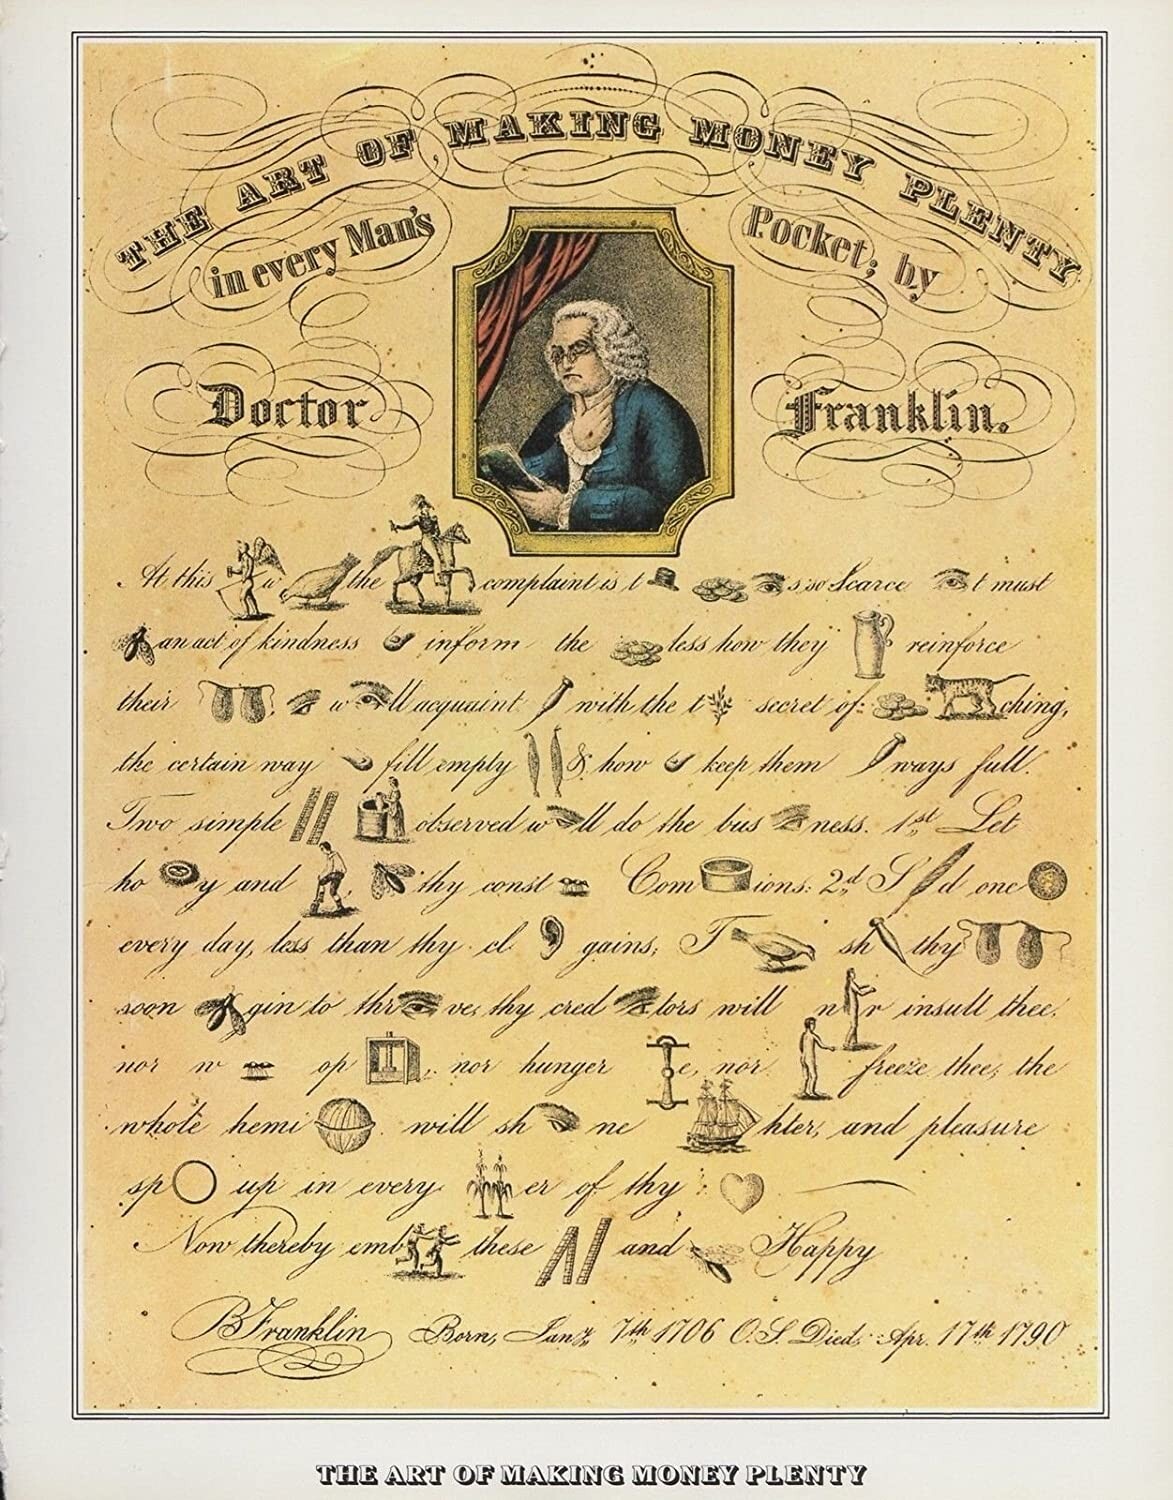 THE ART OF MAKING MONEY PLENTY
in every Man's Pocket; by
Doctor Franklin.
At this w the complaint is t s so Scarce t must
an act of kindness inform the less how they reinforce
their w ll acquaint with the t secret of: ching,
the certain way fill empty & how keep them ways full.
Two simple observed w ll do the bus ness. 1st Let
ho y and thy const Com ions: 2d S d one
every day, less than thy cl gains; T sh thy
soon gin to thr ve, thy cred tors will n r insult thee,
nor w op , nor hunger e, nor freeze thee, the
whole hemi will sh ne hter, and pleasure
sp up in every er of thy
Now thereby emb these and Happy
B Franklin Born, Jany 7th 1706 O.S. Died, Apr. 17th 1790
THE ART OF MAKING MONEY PLENTY